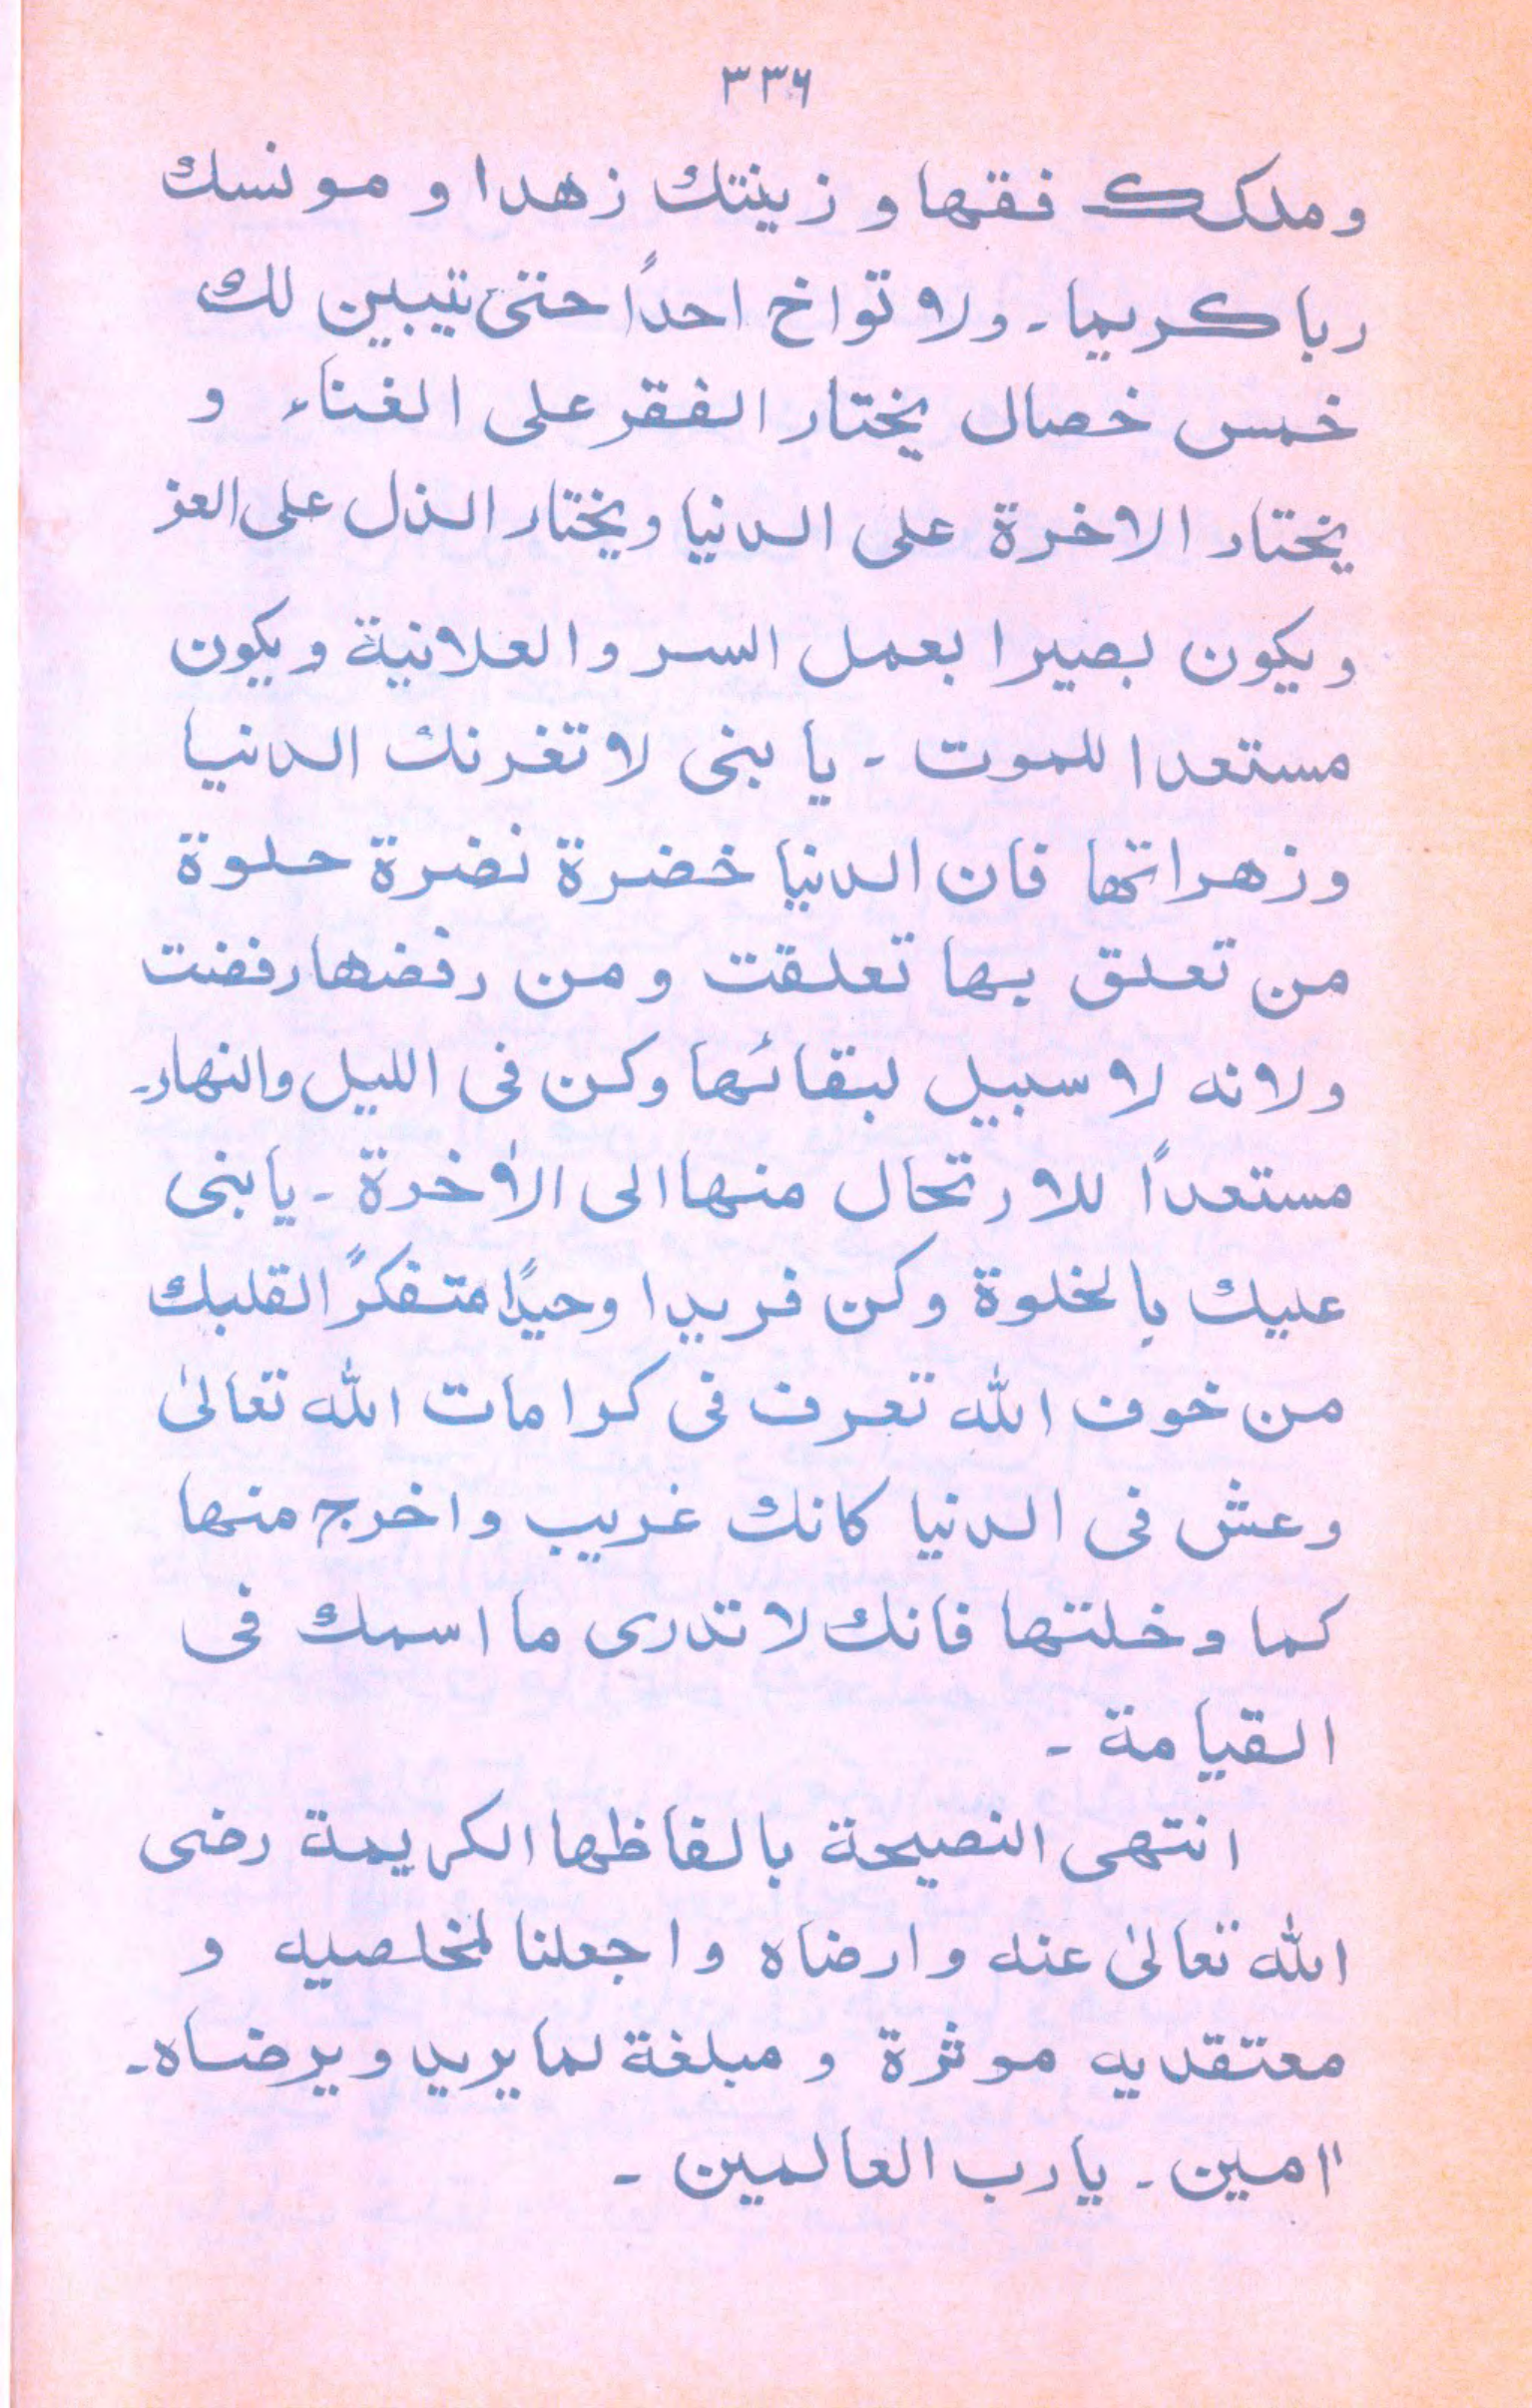 ٣٣٦
وملكك فقها و زينتك زهدا و مونسك
ربا كريما ـ ولا تواخ احداً حتى تيبين لك
خمس خصال يختار الفقر على الغناء و
يختار الاخرة على الدنيا ويختار الذل على العز
ويكون بصيرا بعمل السر والعلانية ويكون
مستعدا للموت ـ يا بنى لا تغرنك الدنيا
وزهراتها فان الدنيا خضرة نضرة حلوة
من تعلق بها تعلقت ومن رفضها رفضت
ولانه لا سبيل لبقائها وكن فى الليل والنهارـ
مستعداً للارتحال منها الى الاٰخرة ـ يا بنى
عليك بالخلوة وكن فريدا وحيدًا متفكرًا لقلبك
من خوف الله تعرف فى كرامات الله تعالىٰ
وعش فى الدنيا كانك غريب واخرج منها
كما دخلتها فانك لا تدرى ما اسمك فى
القيامة ـ
انتهى النصيحة بالفاظها الكريمة رضى
الله تعالىٰ عنه وارضاه واجعلنا لمخلصيه و
معتقديه موثرة و مبلغة لما يريد ويرضاه ـ
اٰمين ـ يا رب العالمين ـ